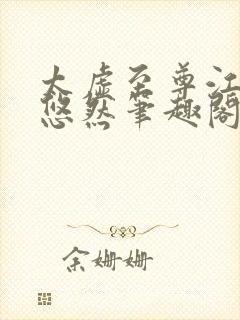 太虚至尊江
悠然笔趣阁
余姗姗